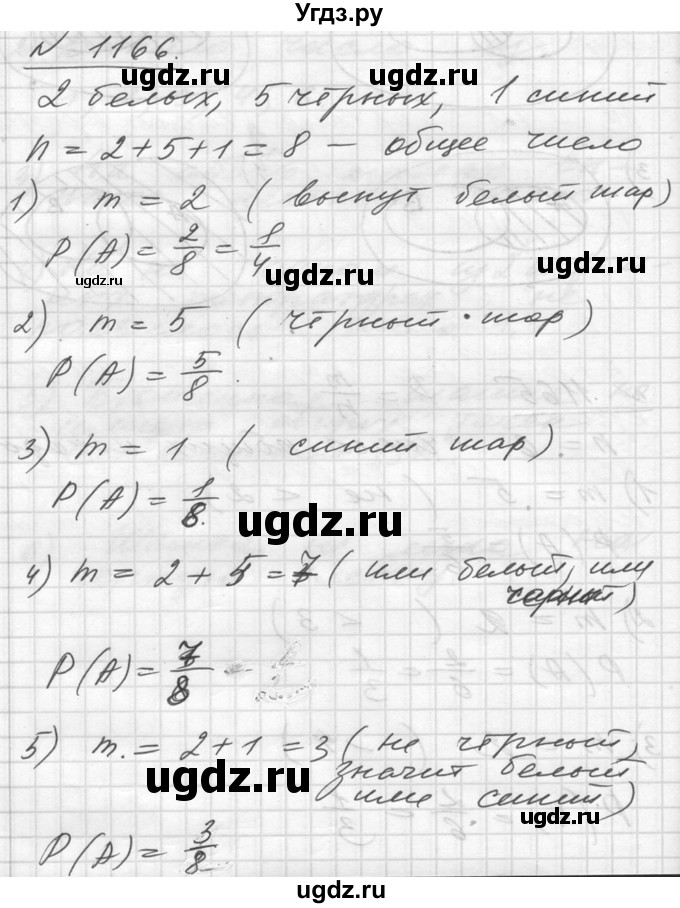 Угдз.ру
№ 1166.
2 белых, 5 чёрных, 1 синий
n = 2 + 5 + 1 = 8 – общее число
1) m = 2 ( вынут белый шар)
P(A) = 2/8 = 1/4
2) m = 5 ( чёрный шар)
P(A) = 5/8
3) m = 1 ( синий шар).
P(A) = 1/8.
4) m = 2 + 5 = 7 ( или белый, или
P(A) = 7/8
5) m. = 2 + 1 = 3 ( не чёрный,
значит белый
или синий)
P(A) = 3/8
ugdz.ru
ugdz.ru
ugdz.ru
ugdz.ru
ugdz.ru
ugdz.ru
ugdz.ru
ugdz.ru
ugdz.ru
ugdz.ru
ugdz.ru
ugdz.ru
ugdz.ru
ugdz.ru